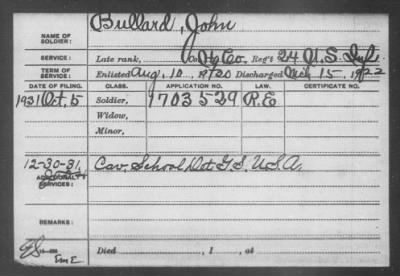 NAME OF SOLDIER: Bullard, John
SERVICE: Late rank, Co. Hq Co., Reg't 24 U.S. Inf.
TERM OF SERVICE: Enlisted Aug. 10, 1920 Discharged 15, 1922
DATE OF FILING. CLASS. APPLICATION NO. LAW. CERTIFICATE NO.
1931 Oct. 5 Soldier, 1703529 R.E
Widow,
Minor,
12-30-31, Cav. School Det G.S. U.S.A.
ADDITIONAL SERVICES:
REMARKS:
Died , 1 , at